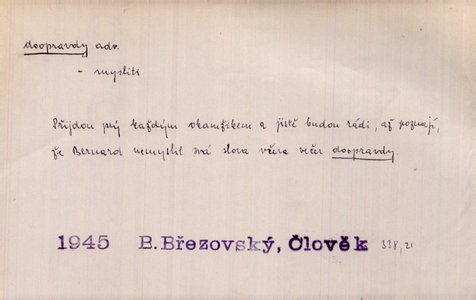 doopravdy adv.
- mysliti
Přijdou prý každým okamžikem a jistě budou rádi, až poznají,
že Bernard nemyslil svá slova včera večer doopravdy.
1945 B. Březovský, Člověk 338, 21